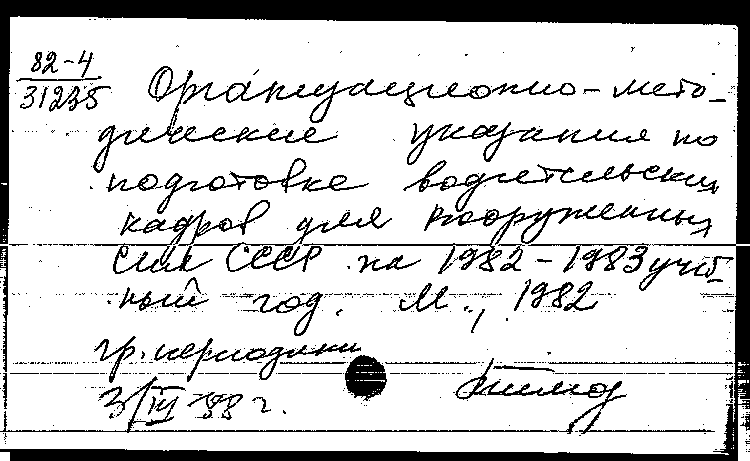 82-4
31235
Организационно-мето-
дические указания по
подготовке водительских
кадров для Вооруженных
Сил СССР на 1982-1983 учеб-
ный год. М., 1982
гр. периодики
3/III-88 г.